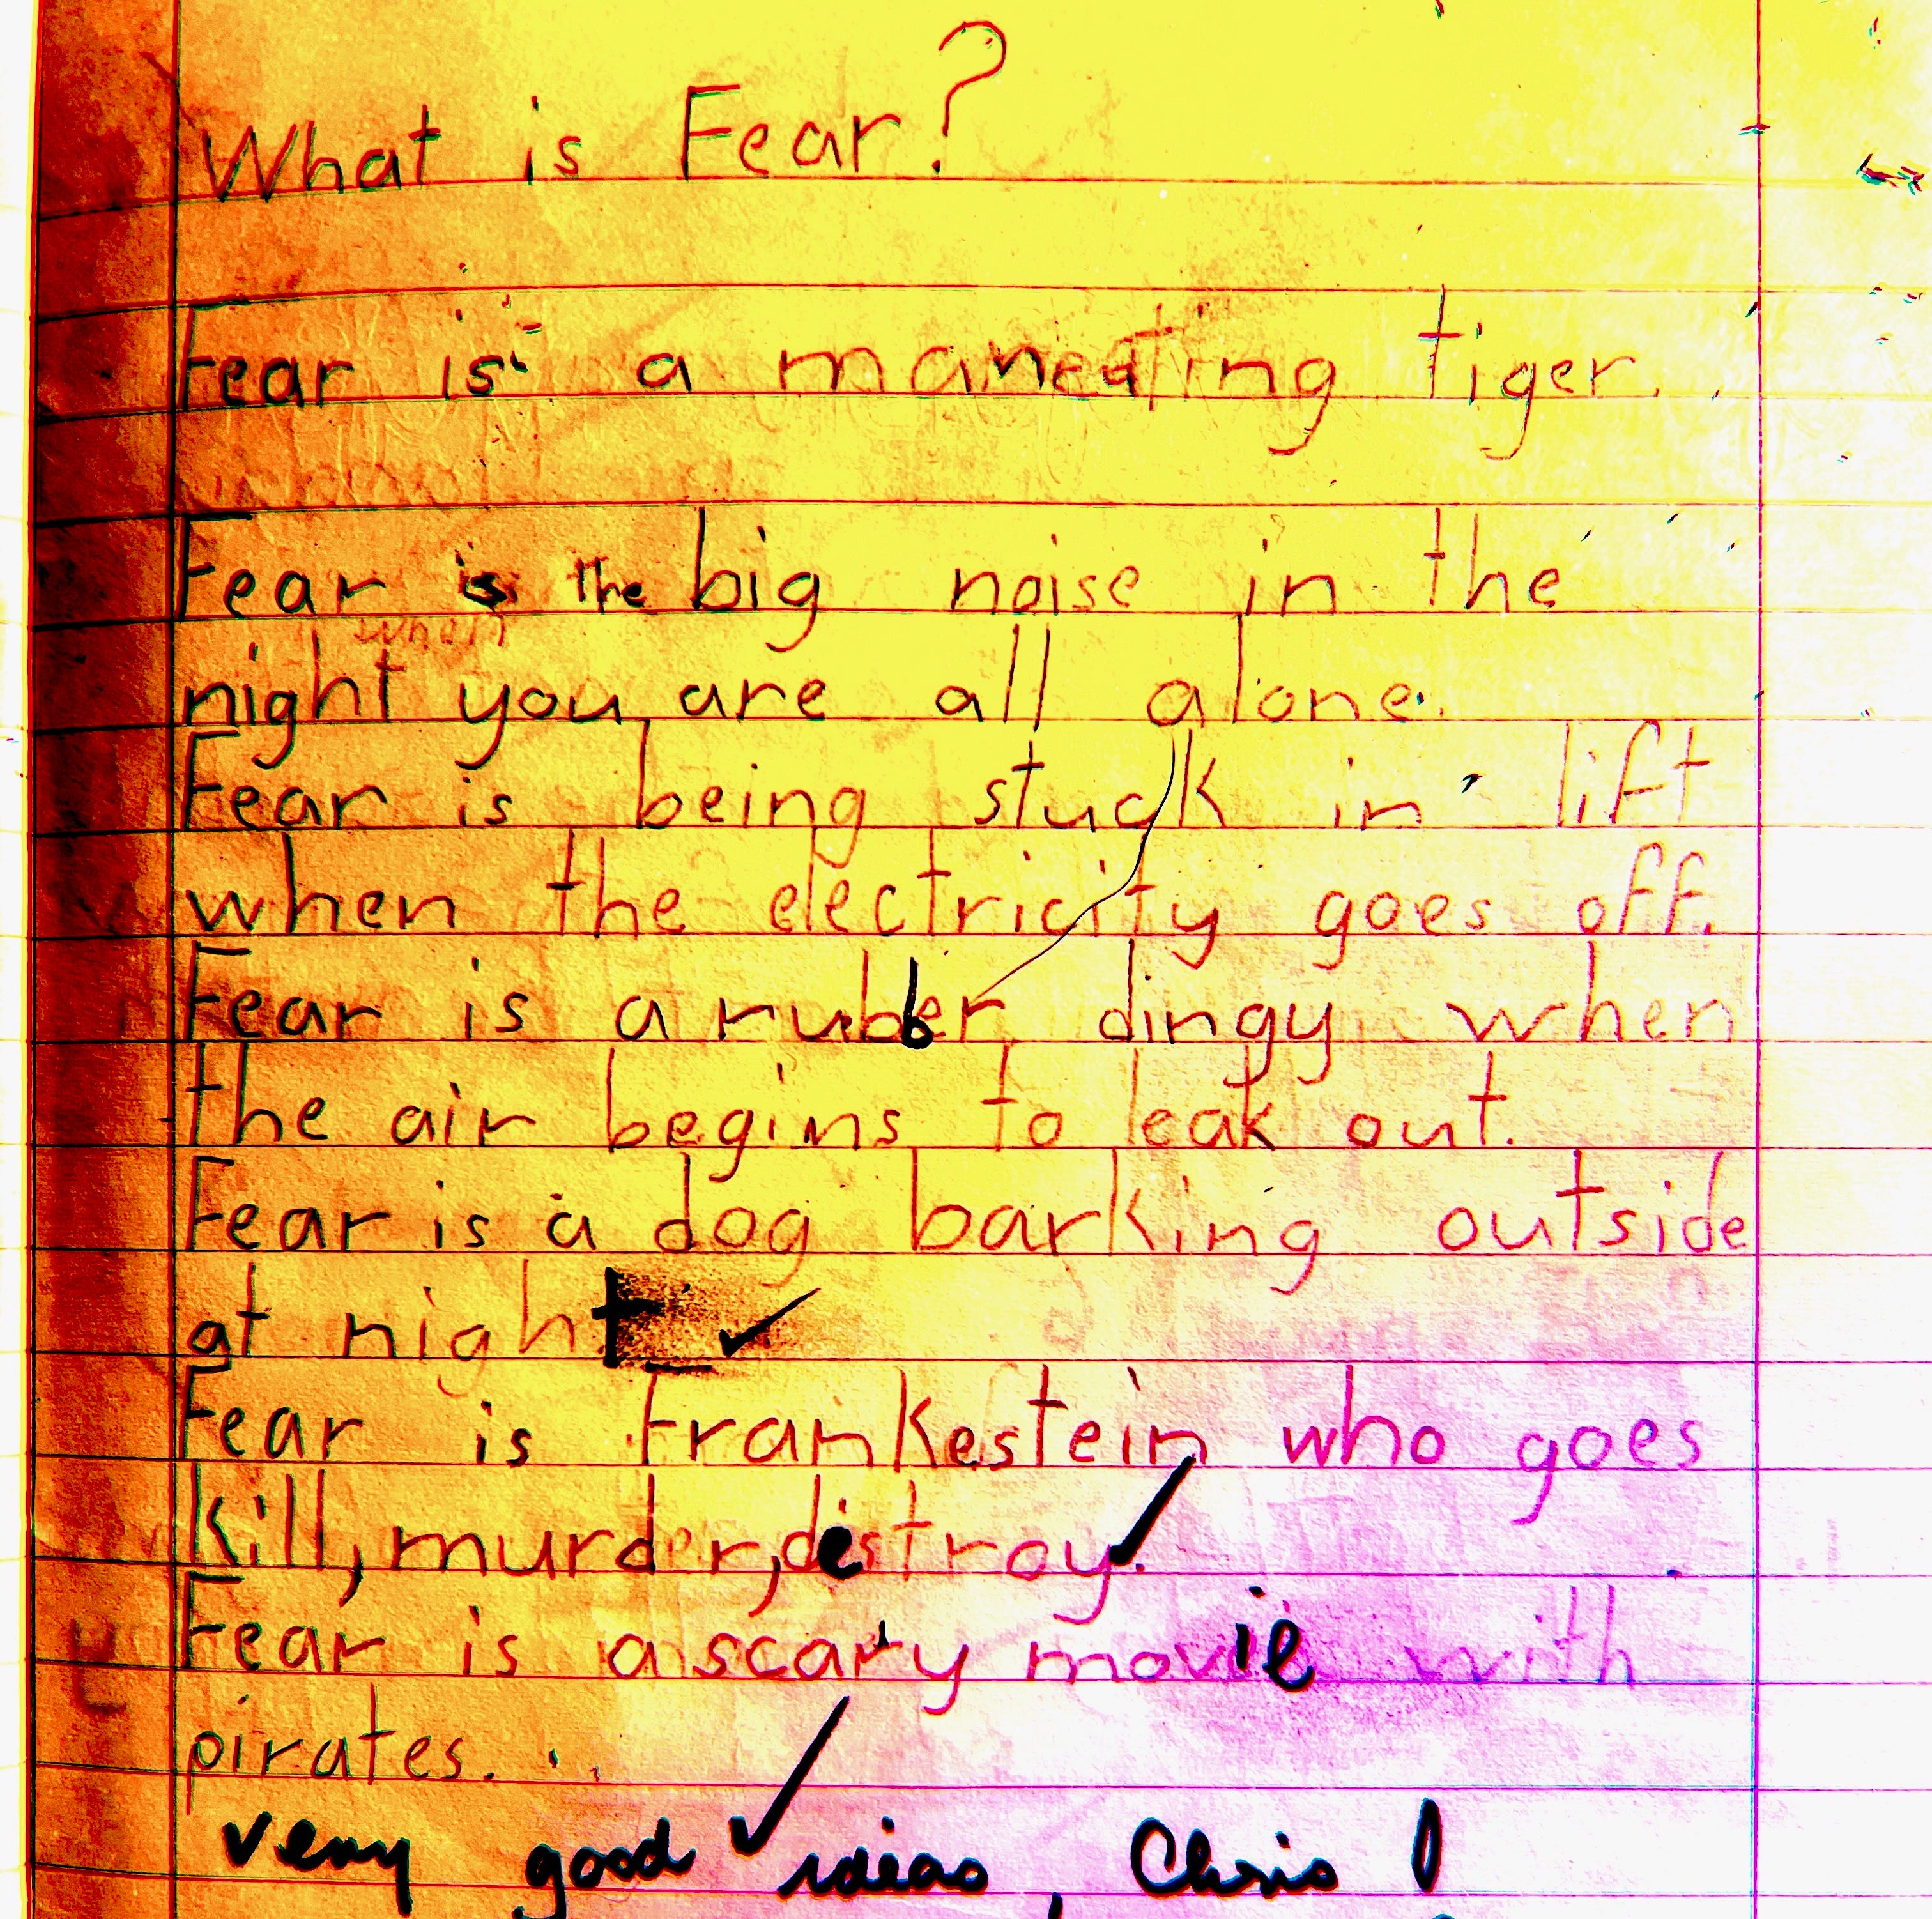 What is Fear?
Fear is a maneating tiger.
Fear is the big noise in the
when
night you are all alone.
Fear is being stuck in lift
when the electricity goes off.
Fear is a rubber dingy when
the air begins to leak out.
Fear is a dog barking outside
at night
Fear is Frankestein who goes
kill, murder, destroy.
Fear is a scary movie with
pirates.
very good ideas, Chris!